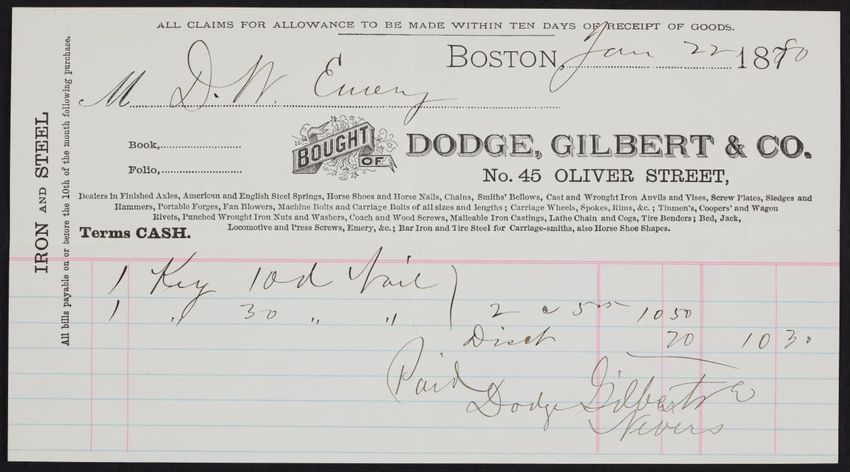 ALL CLAIMS FOR ALLOWANCE TO BE MADE WITHIN TEN DAYS OF RECEIPT OF GOODS.
BOSTON, Jan 22 1880
M D. W. Emery
Book,
Folio,
BOUGHT OF
DODGE, GILBERT & CO.
No. 45 OLIVER STREET,
Dealers in Finished Axles, American and English Steel Springs, Horse Shoes and Horse Nails, Chains, Smiths' Bellows, Cast and Wrought Iron Anvils and Vises, Screw Plates, Sledges and
Hammers, Portable Forges, Fan Blowers, Machine Bolts and Carriage Bolts of all sizes and lengths; Carriage Wheels, Spokes, Rims, &c.; Tinmen's, Coopers' and Wagon
Rivets, Punched Wrought Iron Nuts and Washers, Coach and Wood Screws, Malleable Iron Castings, Lathe Chain and Cogs, Tire Benders; Bed, Jack,
Locomotive and Press Screws, Emery, &c.; Bar Iron and Tire Steel for Carriage-smiths, also Horse Shoe Shapes.
Terms CASH.
IRON AND STEEL
All bills payable on or before the 10th of the month following purchase.
1 Keg 10d Nail
1 " 30 " " 2 @ 5 25 10 50
Disct 20 10 30
Paid
Dodge Gilbert &
Nevers